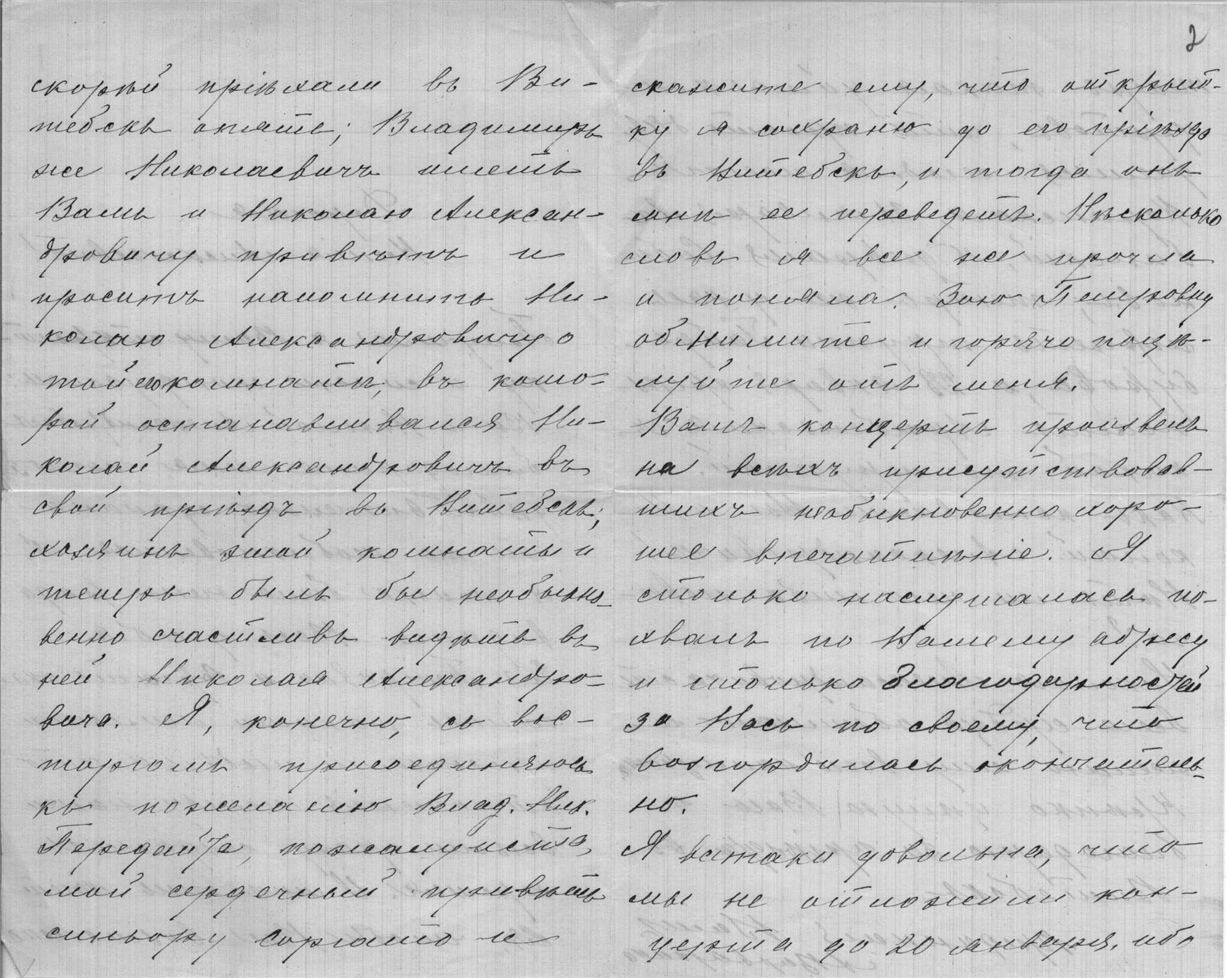 2
скорѣй пріѣхали въ Ви-
тебскъ опять; Владимиръ
же Николаевичъ шлетъ
Вамъ и Николаю Алексан-
дровичу привѣтъ и
проситъ напомнить Ни-
колаю Александровичу о
той комнатѣ, въ кото-
рой останавливался Ни-
колай Александровичъ въ
свой пріѣздъ въ Витебскъ;
хозяинъ этой комнаты и
теперь былъ бы необыкно-
венно счастливъ видѣть въ
ней Николая Александро-
вича. Я, конечно, съ вос-
торгомъ присоединяюсь
къ пожеланію Влад. Ник.
Передайте, пожалуйста,
мой сердечный привѣтъ
синьору Соргато и
скажите ему, что открыт-
ку я сохраню до его пріѣзда
въ Витебскъ, и тогда онъ
мнѣ ее переведетъ. Нѣсколько
словъ я все же прочла
и поняла. Зою Петровну
обнимите и горячо поцѣ-
луйте отъ меня.
Вашъ концертъ произвелъ
на всѣхъ присутствовав-
шихъ необыкновенно хоро-
шее впечатлѣніе. Я
столько наслушалась по-
хвалъ по Вашему адресу
и столько благодарностей
за Васъ по своему, что
возгордилась окончатель-
но.
Яватаки довольна, что
мы не отложили кон-
церта до 20 января, ибо